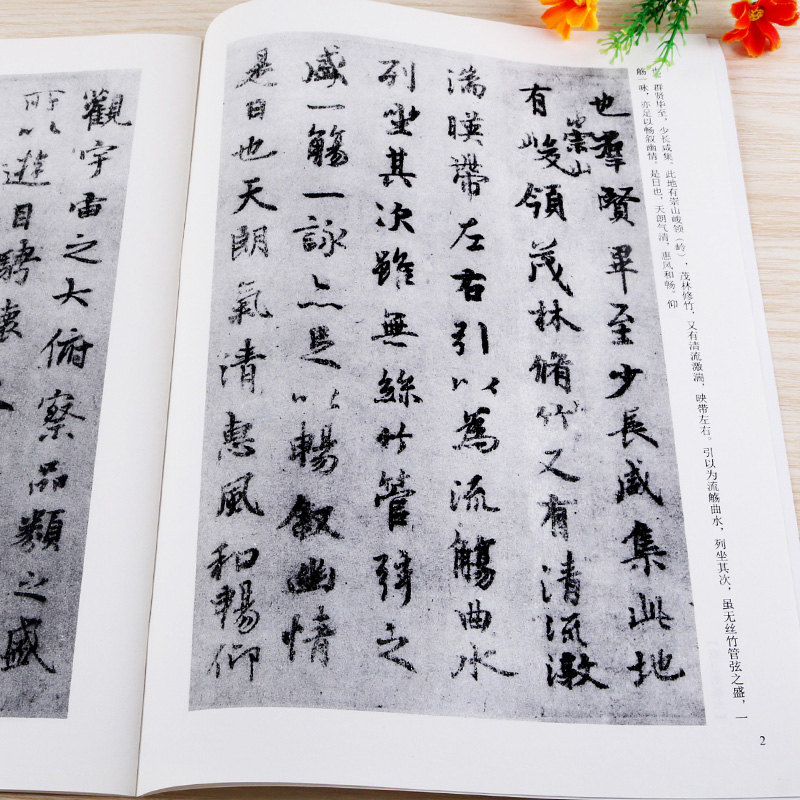 也。群贤毕至，少长咸集。此地有崇山峻领（岭），茂林修竹，又有清流激湍，映带左右。引以为流觞曲水，列坐其次，虽无丝竹管弦之盛，一
觞一咏，亦足以畅叙幽情。是日也，天朗气清，惠风和畅。仰
也羣賢畢至少長咸集此地
有崇山峻領茂林脩竹又有清流激
湍暎帶左右引以為流觴曲水
列坐其次雖無絲竹管弦之
盛一觴一詠亦足以暢叙幽情
是日也天朗氣清惠風和暢仰
觀宇宙之大俯察品類之盛
所以遊目騁懷
2